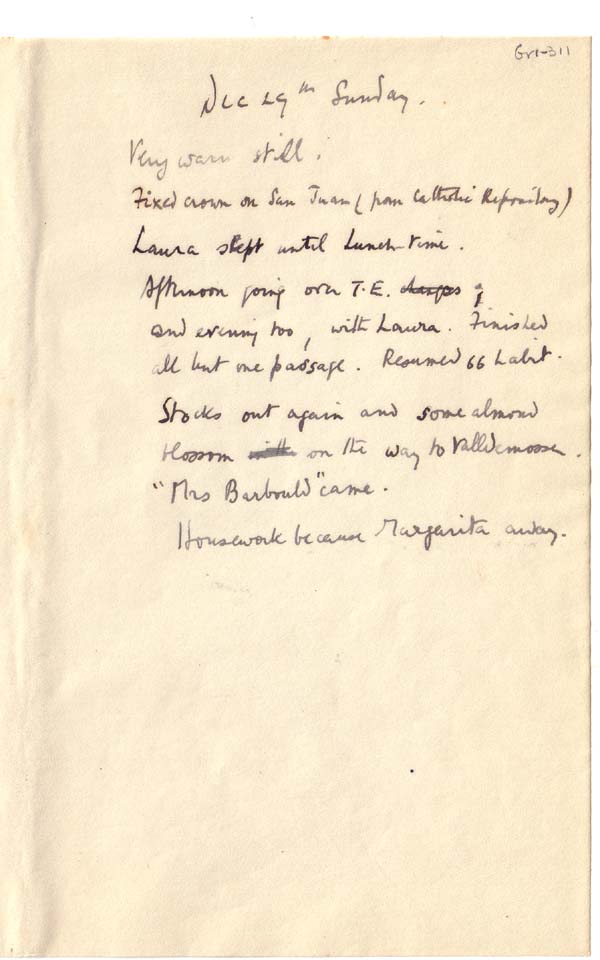 Gr1-311
Dec 29th Sunday.
Very warm still.
Fixed crown on San Juan (from Catholic Repository)
Laura slept until lunch-time.
Afternoon going over T.E. ;
and evening too, with Laura. Finished
all but one passage. Resumed 66 habit.
Stocks out again and some almond
blossom on the way to Valldemossa.
"Mrs Barbould" came.
Housework because Margarita away.